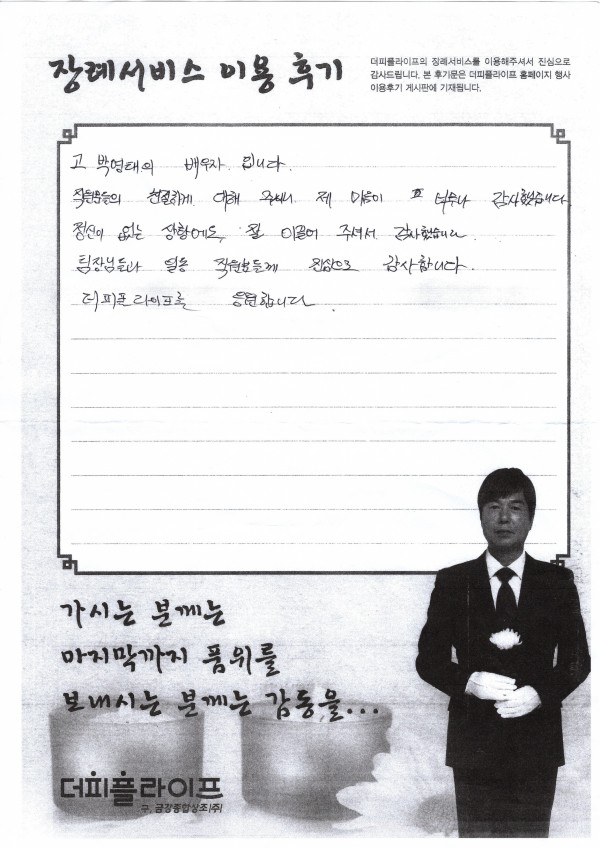 장례서비스 이용 후기
더피플라이프의 장례서비스를 이용해주셔서 진심으로
감사드립니다. 본 후기문은 더피플라이프 홈페이지 행사
이용후기 게시판에 기재됩니다.
고 박영태의 배우자 입니다.
직원분들의 친절하게 대해 주셔서 제 마음이 너무나 감사했습니다.
정신이 없는 상황에도, 잘 이끌어 주셔서 감사했습니다.
팀장님들과 일동 직원분들께 진심으로 감사합니다.
더피플라이프를 응원합니다.
가시는 분께는
마지막까지 품위를
보내시는 분께는 감동을...
더피플라이프
구. 금강종합상조(주)